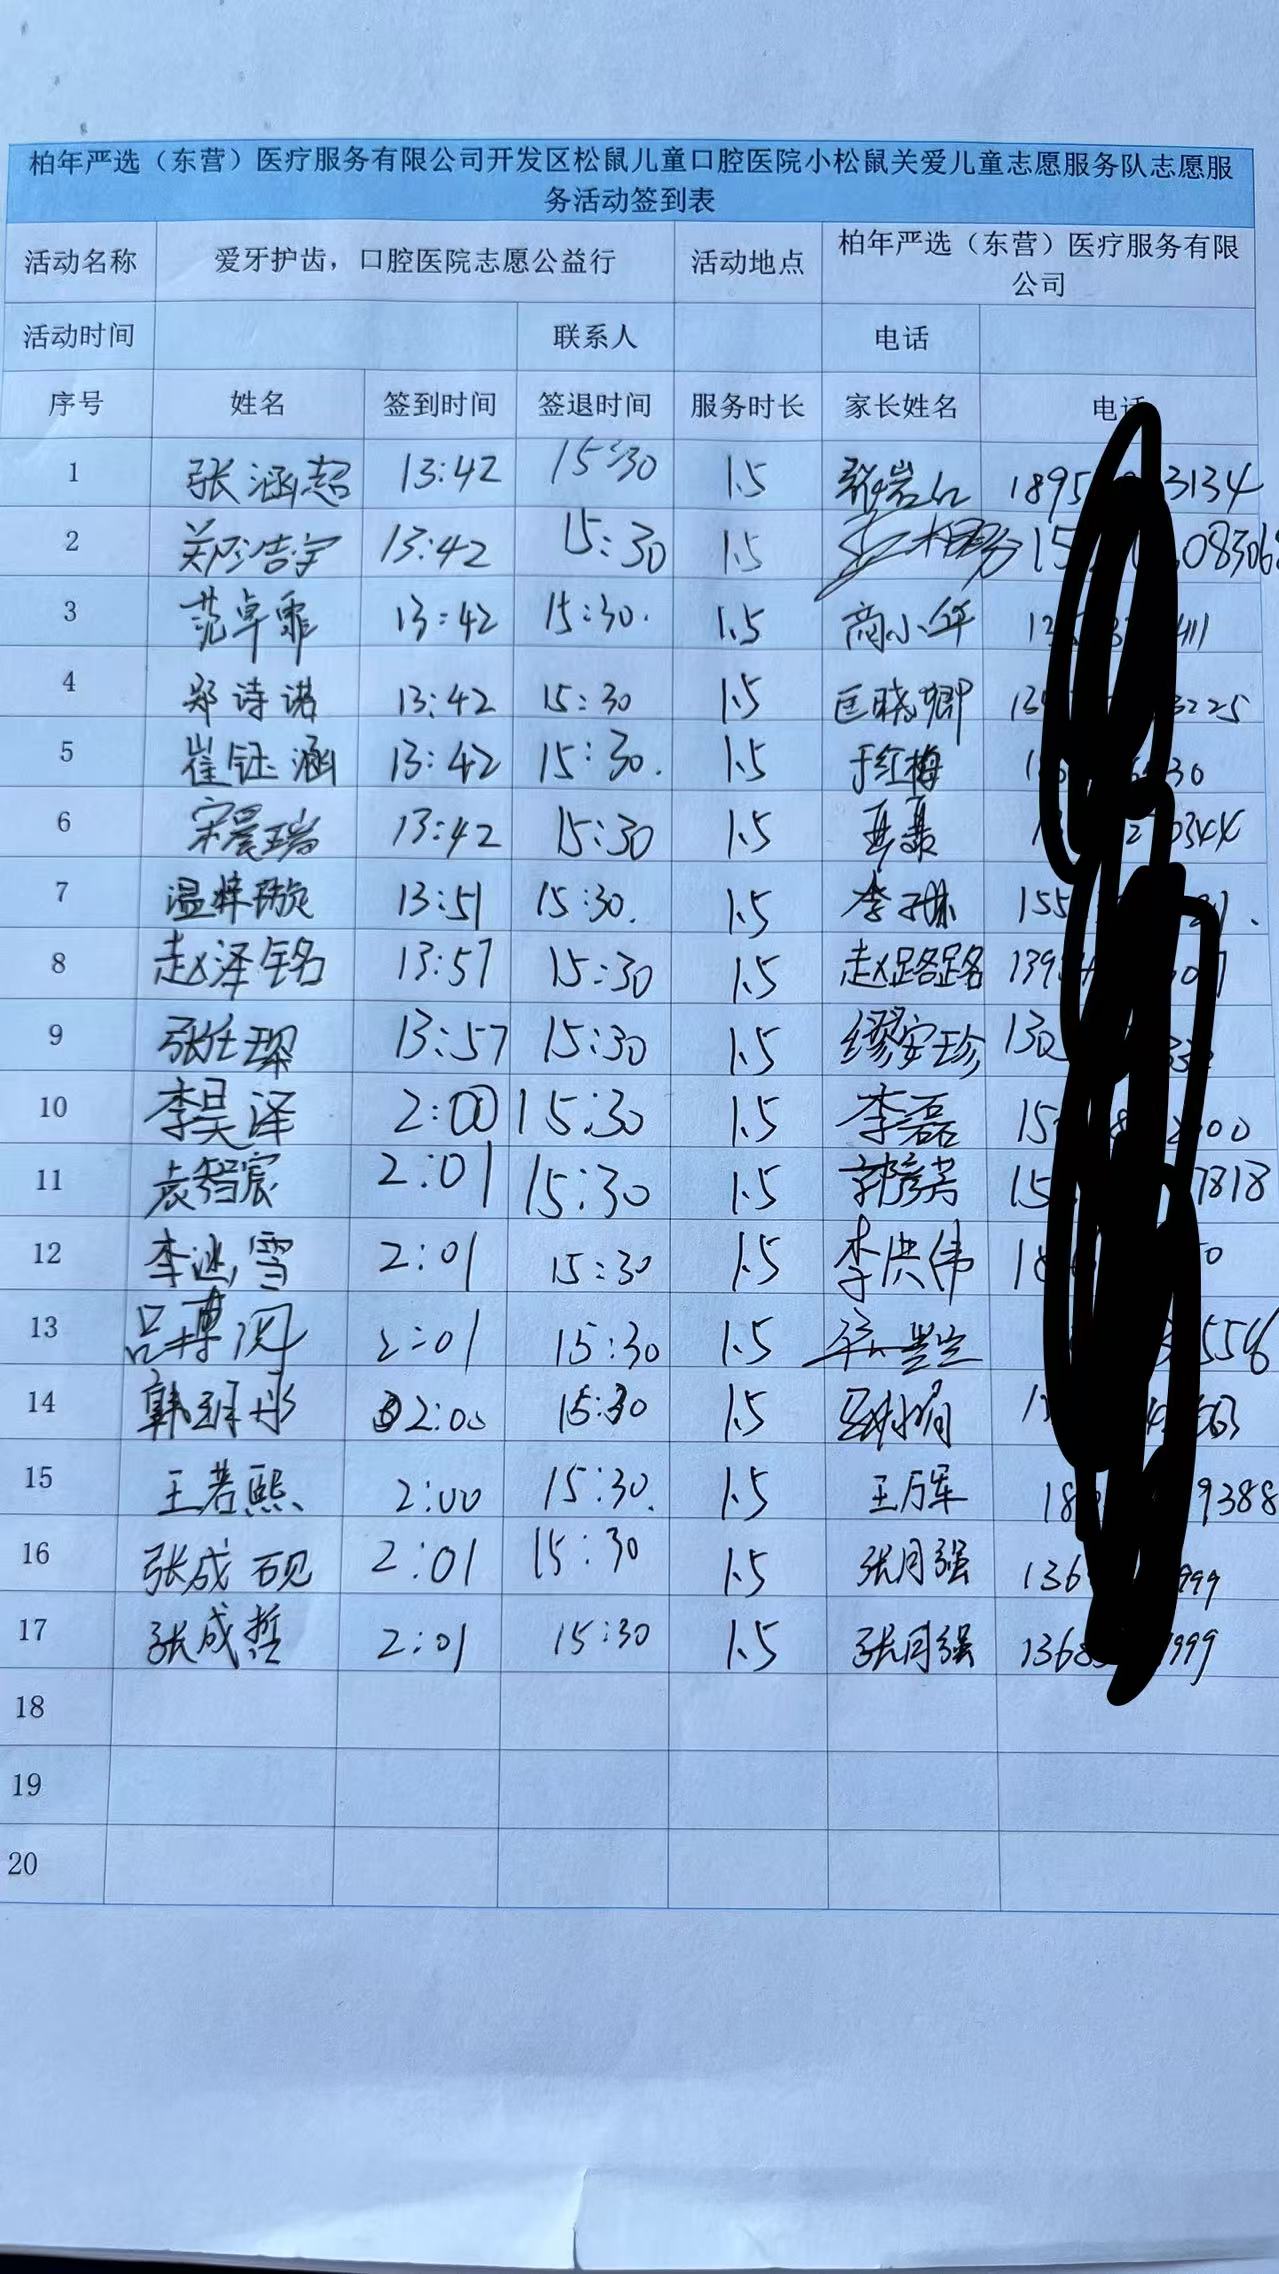 柏年严选（东营）医疗服务有限公司开发区松鼠儿童口腔医院小松鼠关爱儿童志愿服务队志愿服
务活动签到表
活动名称 爱牙护齿，口腔医院志愿公益行 活动地点 柏年严选（东营）医疗服务有限
公司
活动时间 联系人 电话
序号 姓名 签到时间 签退时间 服务时长 家长姓名 电话
1 张涵超 13:42 15:30 1.5 张岩 1895 3134
2 郑浩宇 13:42 15:30 1.5 15 083068
3 范卓霏 13:42 15:30. 1.5 商小华
4 郑诗诺 13:42 15:30 1.5 匡晓卿 3225
5 崔钰涵 13:42 15:30. 1.5 于红梅 30
6 宋晨瑞 13:42 15:30 1.5 聂聂
7 温梓璇 13:51 15:30. 1.5 李子琳 155
8 赵泽铭 13:57 15:30 1.5 赵路路 139
9 张仕琛 13:57 15:30 1.5 缪安珍 130
10 李昊泽 2:00 15:30 1.5 李磊 15 00
11 袁智宸 2:01 15:30 1.5 郭彦芳 15 7818
12 李冰雪 2:01 15:30 1.5 李洪伟 18
13 吕博闵 2:01 15:30 1.5 556
14 韩玥彤 2:00 15:30 1.5
15 王若熙 2:00 15:30. 1.5 王万军 18 9388
16 张成砚 2:01 15:30 1.5 张同强 136 999
17 张成哲 2:01 15:30 1.5 张同强 1368 999
18
19
20